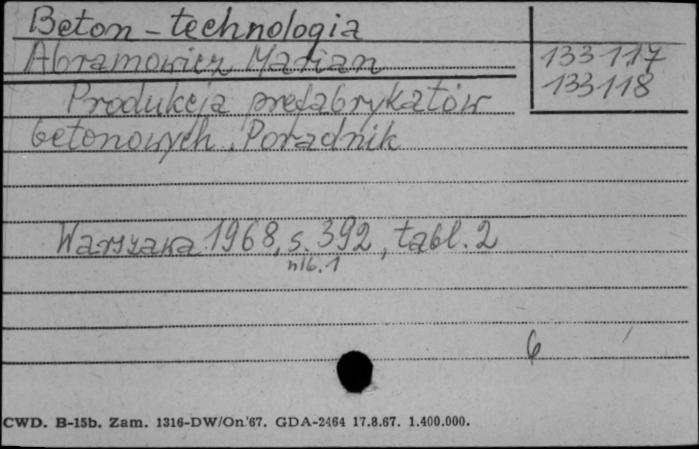 Beton - technologia
Abramowicz Marian
133117
133118
Produkcja prefabrykatów
betonowych. Poradnik
Warszawa 1968, s. 392, tabl. 2
nlb. 1
6
CWD. B-15b. Zam. 1316-DW/On.'67. GDA-2464 17.8.67. 1.400.000.